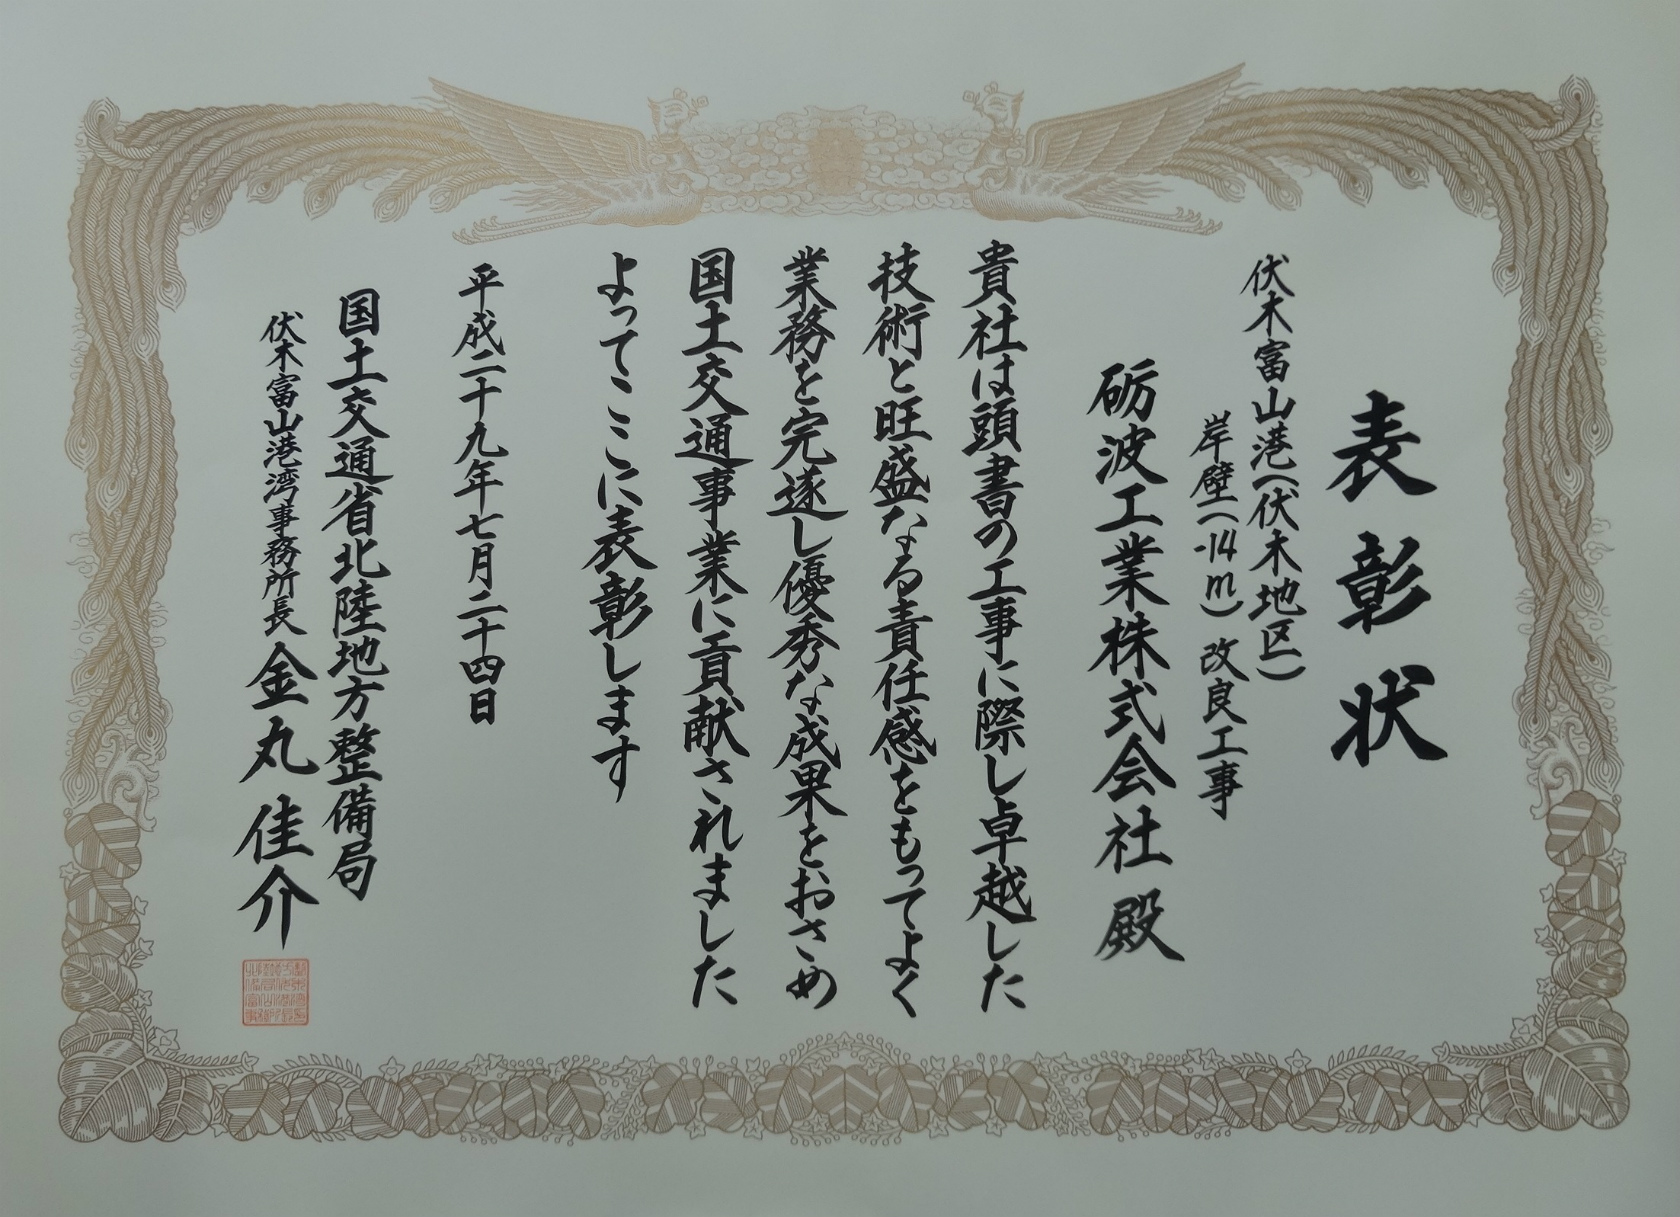 表彰状
伏木富山港(伏木地区)
岸壁(-14m)改良工事
砺波工業株式会社殿
貴社は頭書の工事に際し卓越した
技術と旺盛なる責任感をもってよく
業務を完遂し優秀な成果をおさめ
国土交通事業に貢献されました
よってここに表彰します
平成二十九年七月二十四日
国土交通省北陸地方整備局
伏木富山港湾事務所長 金丸佳介